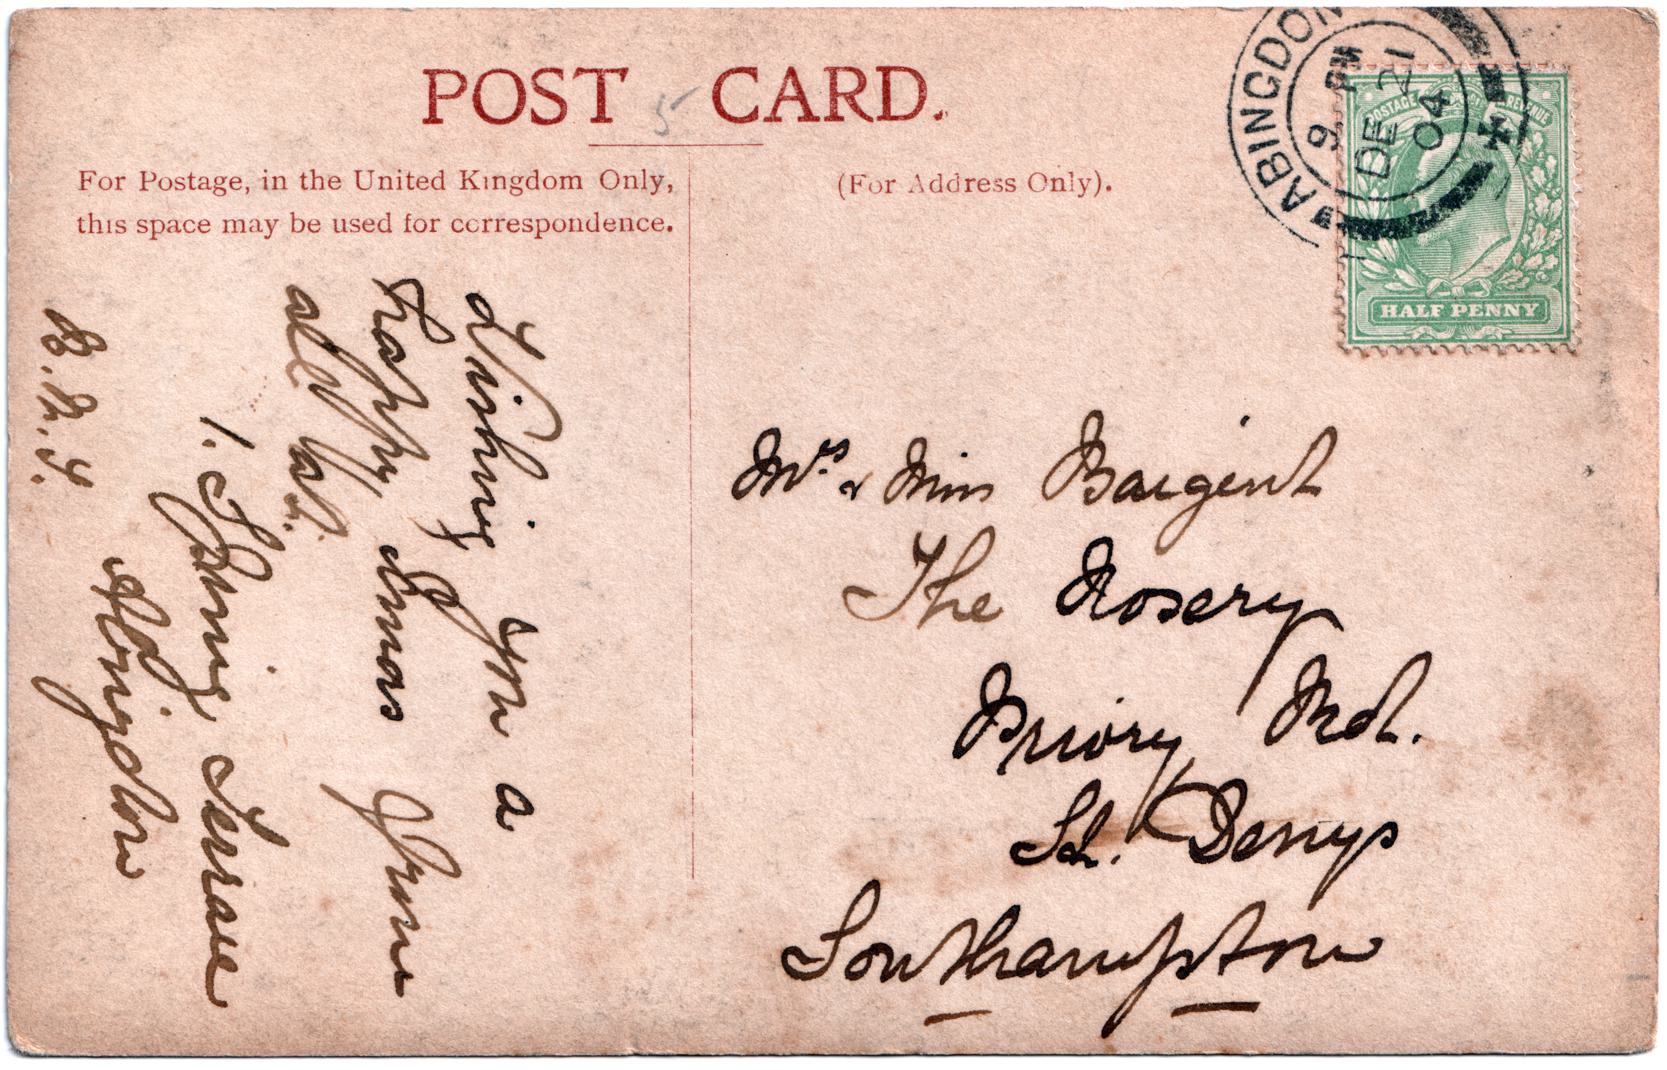 POST CARD.
5
For Postage, in the United Kingdom Only,
this space may be used for correspondence.
(For Address Only).
ABINGDON
9 PM
DE 21
04
POSTAGE REVENUE
HALF PENNY
Wishing you a
happy Xmas from
all at
1. Spring Terrace
Abingdon
Mrs & Miss Bargent
The Rosery
Priory Rd.
St. Denys
Southampton